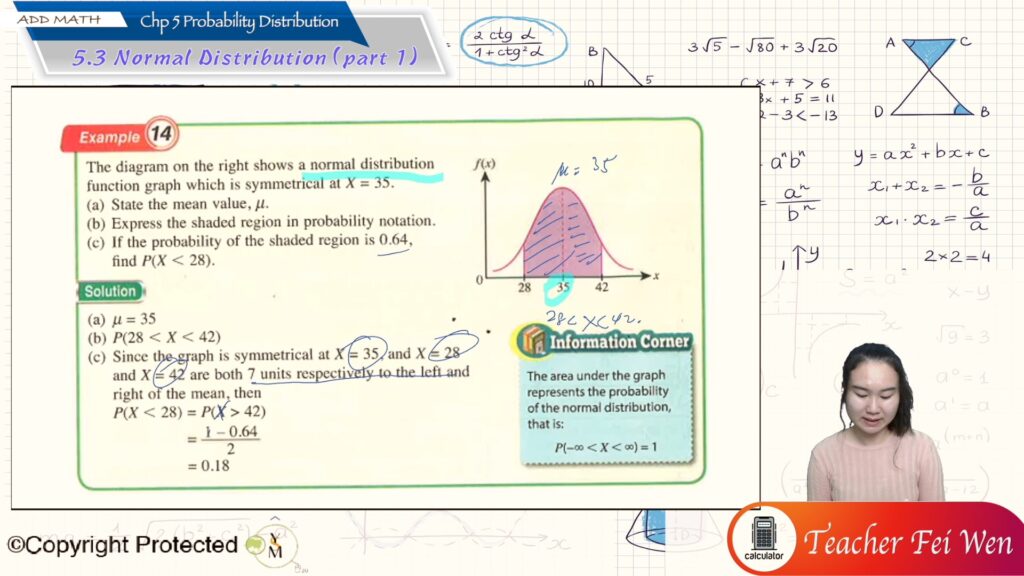 ADD MATH
Chp 5 Probability Distribution
5.3 Normal Distribution (part 1)
= 2 ctg α / 1 + ctg² α
B
5
3√5 − √80 + 3√20
x + 7 > 6
3x + 5 = 11
2 − 3 < −13
A C
D B
aⁿbⁿ
= aⁿ / bⁿ
y = ax² + bx + c
x₁ + x₂ = − b/a
x₁ · x₂ = c/a
y
2 × 2 = 4
x − y
√9 = 3
a⁰ = 1
a¹ = a
Example 14
The diagram on the right shows a normal distribution
function graph which is symmetrical at X = 35.
(a) State the mean value, μ.
(b) Express the shaded region in probability notation.
(c) If the probability of the shaded region is 0.64,
find P(X < 28).
f(x)
μ = 35
0 28 35 42 x
28 < X < 42.
Solution
(a) μ = 35
(b) P(28 < X < 42)
(c) Since the graph is symmetrical at X = 35, and X = 28
and X = 42 are both 7 units respectively to the left and
right of the mean, then
P(X < 28) = P(X > 42)
= 1 − 0.64 / 2
= 0.18
Information Corner
The area under the graph
represents the probability
of the normal distribution,
that is:
P(−∞ < X < ∞) = 1
©Copyright Protected
YM
calculator
Teacher Fei Wen